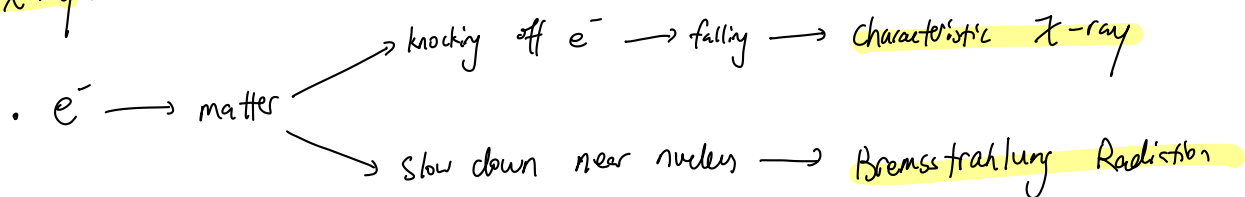 knocking off e⁻ → falling → Characteristic X-ray
· e⁻ → matter
slow down near nucleus → Bremsstrahlung Radiation